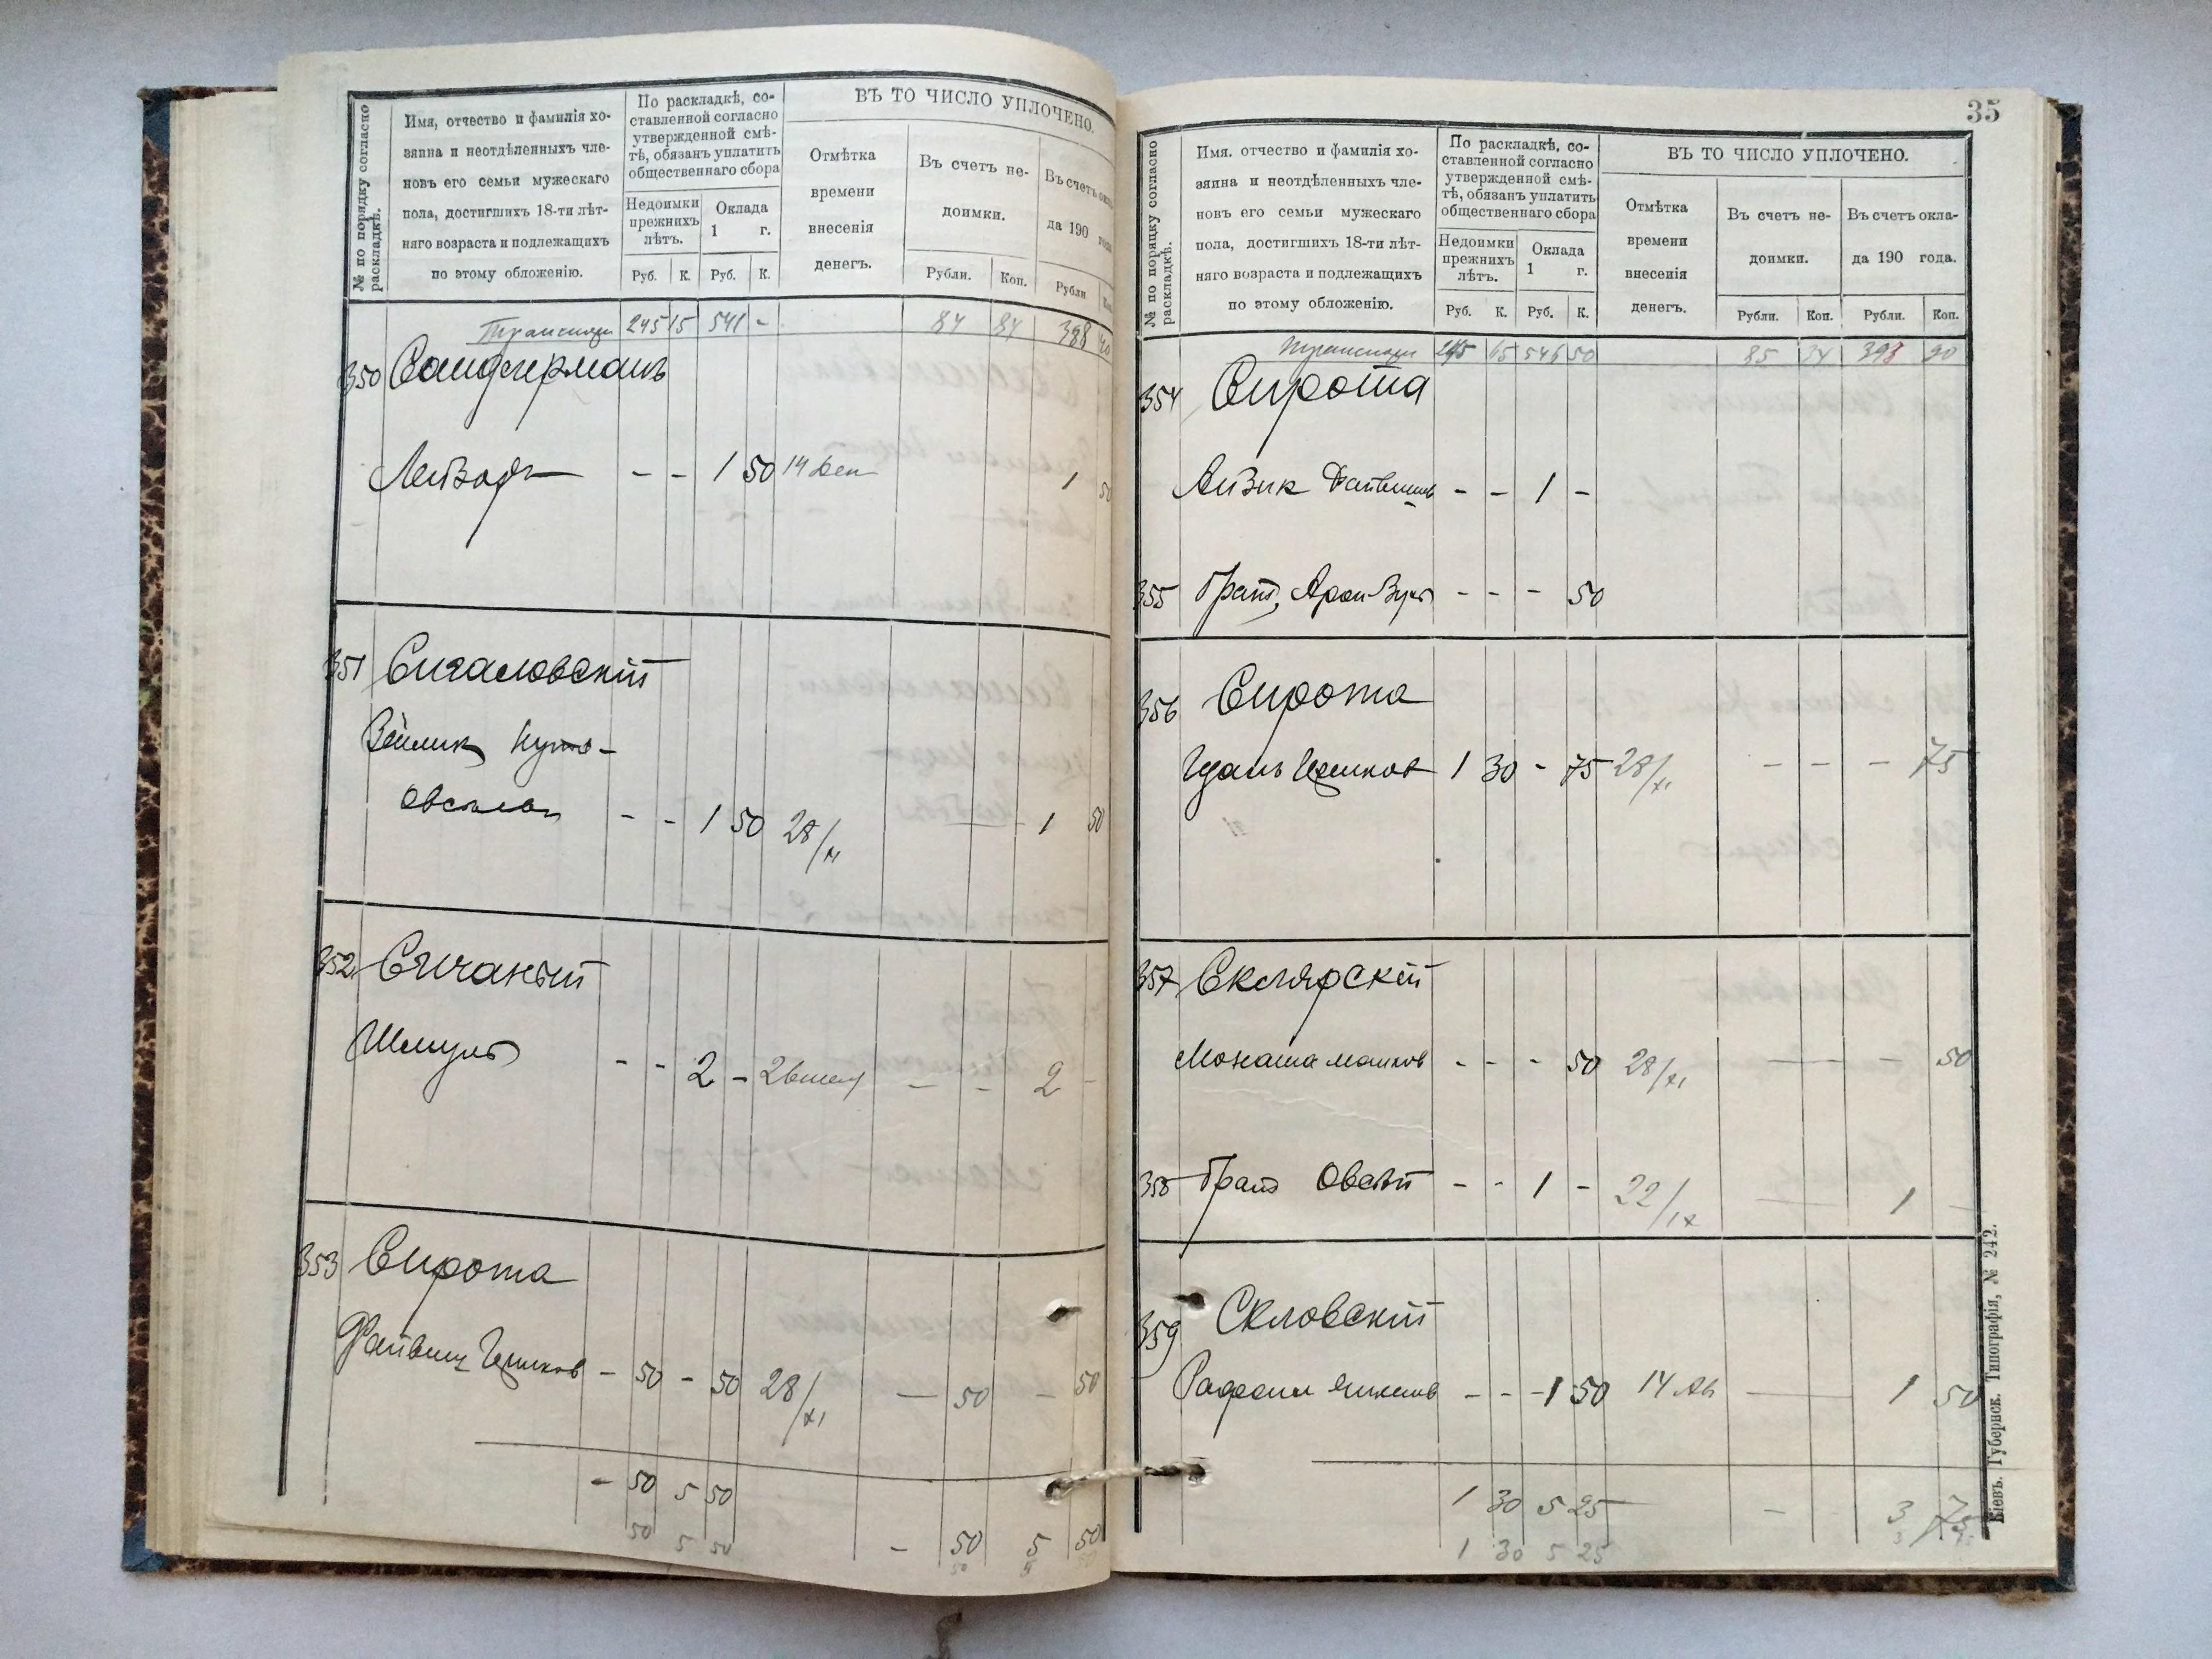 № по порядку согласно раскладкѣ.
Имя, отчество и фамилія хо-
зяина и неотдѣленныхъ чле-
новъ его семьи мужескаго
пола, достигшихъ 18-ти лѣт-
няго возраста и подлежащихъ
по этому обложенію.
По раскладкѣ, со-
ставленной согласно
утвержденной смѣ-
тѣ, обязанъ уплатить
общественнаго сбора
Недоимки
прежнихъ
лѣтъ.
Оклада
1 г.
Руб. К. Руб. К.
ВЪ ТО ЧИСЛО УПЛОЧЕНО.
Отмѣтка
времени
внесенія
денегъ.
Въ счетъ не-
доимки.
Рубли. Коп.
Въ счетъ окла-
да 190 года.
Рубли
245 15 541 - 84 84 388 40
350
Лейзоръ - - 1 50 14 1 50
351 Сигаловскій
- - 1 50 28/XI 1 50
352 Сичаный
Шмуль - - 2 - - - 2 -
353 Сирота
Файвиш Ицков - 50 - 50 28/XI - 50 - 50
- 50 5 50
50 5 50
- 50 5 50
35
№ по порядку согласно раскладкѣ.
Имя. отчество и фамилія хо-
зяина и неотдѣленныхъ чле-
новъ его семьи мужескаго
пола, достигшихъ 18-ти лѣт-
няго возраста и подлежащихъ
по этому обложенію.
По раскладкѣ, со-
ставленной согласно
утвержденной смѣ-
тѣ, обязанъ уплатить
общественнаго сбора
Недоимки
прежнихъ
лѣтъ.
Оклада
1 г.
Руб. К. Руб. К.
ВЪ ТО ЧИСЛО УПЛОЧЕНО.
Отмѣтка
времени
внесенія
денегъ.
Въ счетъ не-
доимки.
Рубли. Коп.
Въ счетъ окла-
да 190 года.
Рубли. Коп.
245 65 546 50 85 34 393 90
354 Сирота
Айзик - - 1 -
355 Братъ, Арон - - - 50
356 Сирота
1 30 - 75 28/XI - - - 75
357 Склярскій
- - - 50 28/XI 50
358 Братъ Овсѣй - - 1 - 22/IX 1
359 Скловскій
- - 1 50 14 1 50
1 30 5 25 - 3 75
1 30 5 25
Кіевъ. Губернск. Типографія, № 242.